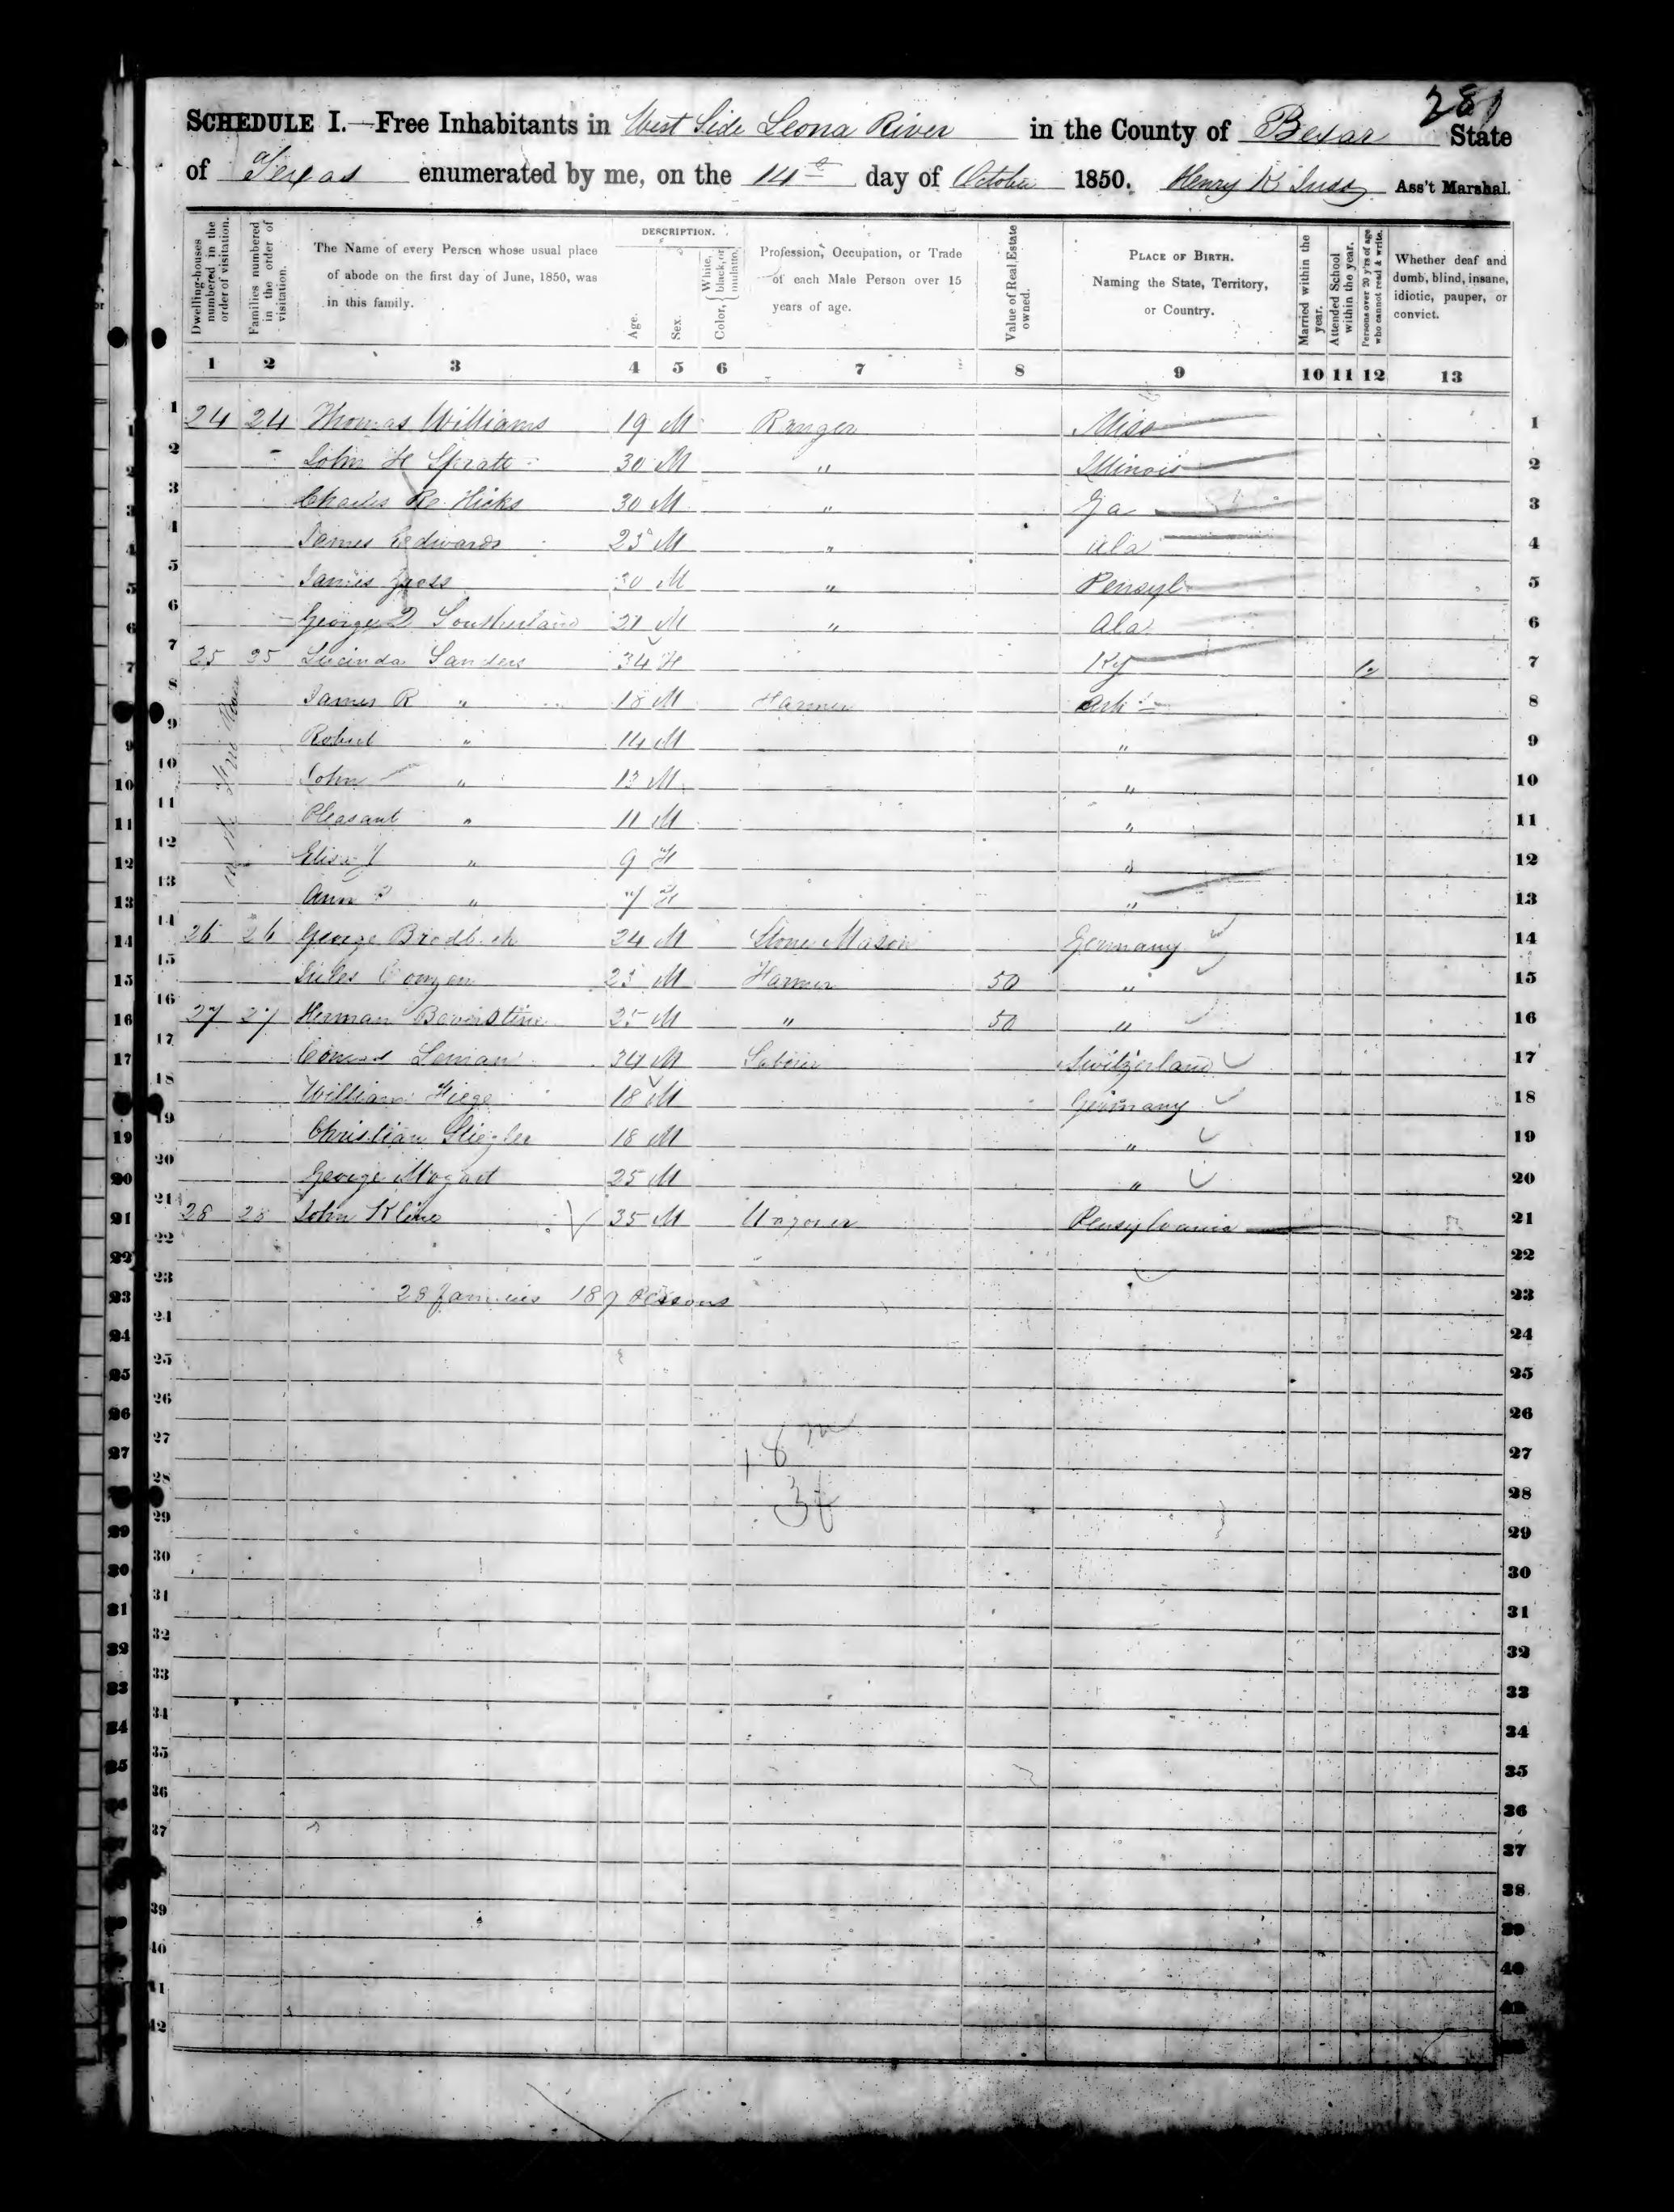 281
SCHEDULE I.—Free Inhabitants in West Side Leona River in the County of Bexar State
of Texas enumerated by me, on the 14th day of October 1850. Henry K Ass't Marshal.
Dwelling-houses numbered in the order of visitation.
Families numbered in the order of visitation.
The Name of every Person whose usual place of abode on the first day of June, 1850, was in this family.
DESCRIPTION.
Age.
Sex.
Color, { White, black, or mulatto.
Profession, Occupation, or Trade of each Male Person over 15 years of age.
Value of Real Estate owned.
PLACE OF BIRTH. Naming the State, Territory, or Country.
Married within the year.
Attended School within the year.
Persons over 20 y'rs of age who cannot read & write.
Whether deaf and dumb, blind, insane, idiotic, pauper, or convict.
1 2 3 4 5 6 7 8 9 10 11 12 13
1 24 24 Thomas Williams 19 M Ranger Miss 1
2 John H Spratt 30 M " Illinois 2
3 Charles Re Hicks 30 M " Ga 3
4 James Edwards 25 M " Ala 4
5 James 30 M " Pensyl 5
6 George D Southerland 21 M " Ala 6
7 25 25 Lucinda Sanders 34 F Ky 1 7
8 James R " 18 M Farmer Ark 8
9 Robert " 14 M " 9
10 John " 13 M " 10
11 Pleasant " 11 M " 11
12 Eliza J " 9 F " 12
13 Ann " 7 F " 13
14 26 26 George 24 M Stone Mason Germany 14
15 Jules 25 M Farmer 50 " 15
16 27 27 Herman 25 M " 50 " 16
17 Conrad 34 M Laborer Switzerland 17
18 William Fiege 18 M Germany 18
19 Christian Stiegler 18 M " 19
20 George Mozart 25 M " 20
21 28 28 John Kline 35 M Wagoner Pensylvania 21
22 22
23 28 families 187 Persons 23
24 24
25 25
26 26
27 18 m 27
28 3 f 28
29 29
30 30
31 31
32 32
33 33
34 34
35 35
36 36
37 37
38
39 39
40 40
41
42